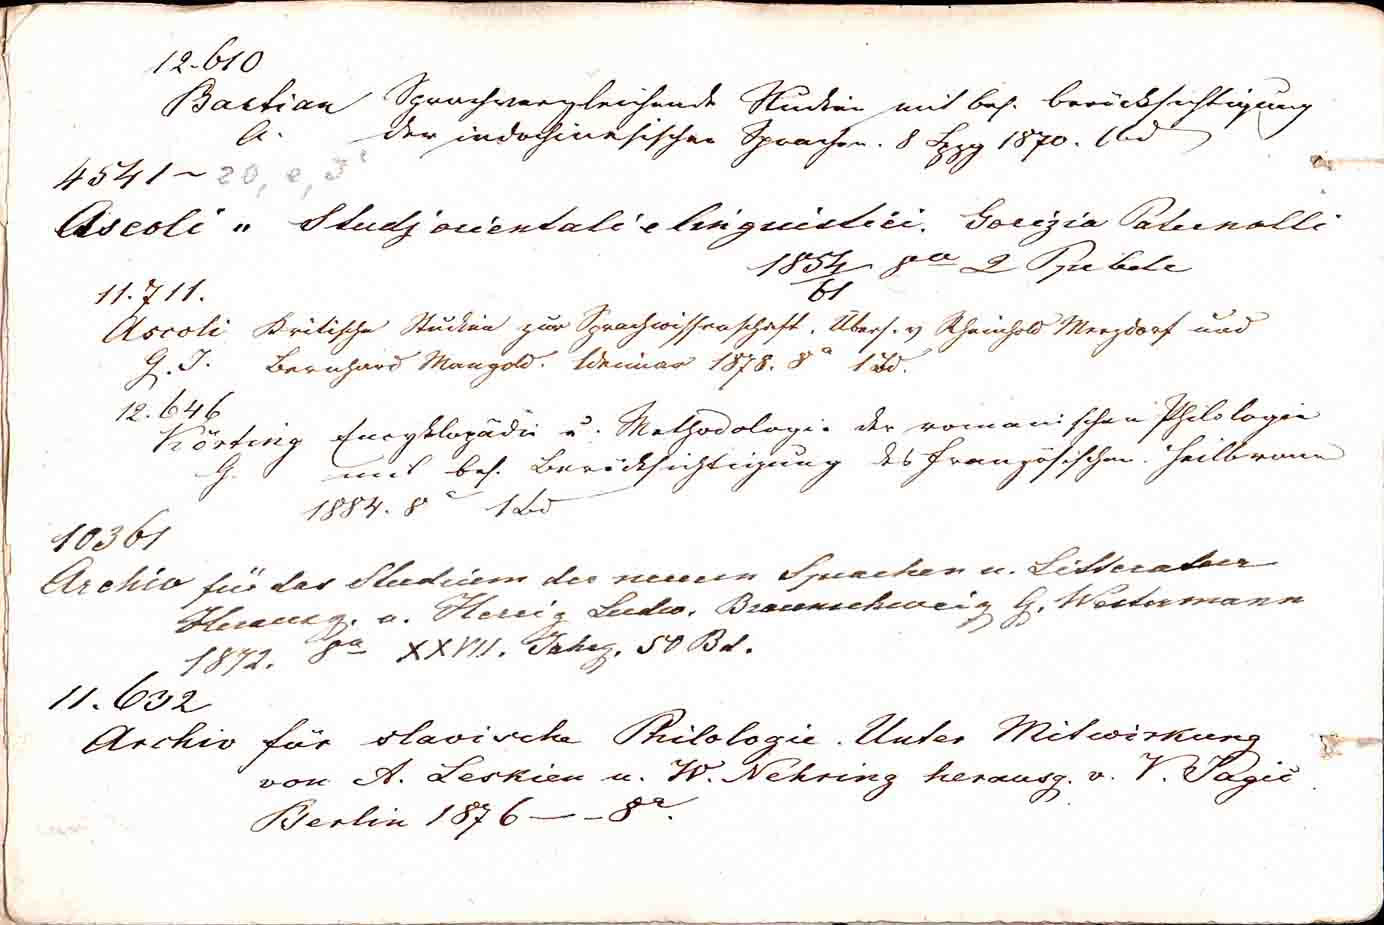 12.610
Bastian Sprachvergleichende Studien mit bes. berücksichtigung
A. der indochinesischen Sprachen. 8 Lpzg 1870. 1 Bd
4541 ~ 20, e, 3
Ascoli " Studj orientali e linguistici. Gorizia Paternolli
1854/61 8° 2
11.711.
Ascoli Kritische Studien zur Sprachwissenschaft. Übers. v Rheinhold Merzdorf und
G. I. Bernhard Mangold. Weimar 1878. 8° 1 Bd.
12.646
Körting Encyklopädie u. Methodologie der romanischen Philologie
G. mit bes. Berücksichtigung des französischen. Heilbronn
1884. 8° 1 Bd
10361
Archiv für das Studium der neuern Sprachen u. Litteratur
Herausg. v. Herrig Ludw. Braunschweig G. Westermann
1872. 8° XXVII. Jahrg. 50 Bd.
11.632
Archiv für slavische Philologie. Unter Mitwirkung
von A. Leskien u. W. Nehring herausg. v. V. Jagić
Berlin 1876 — – 8°.